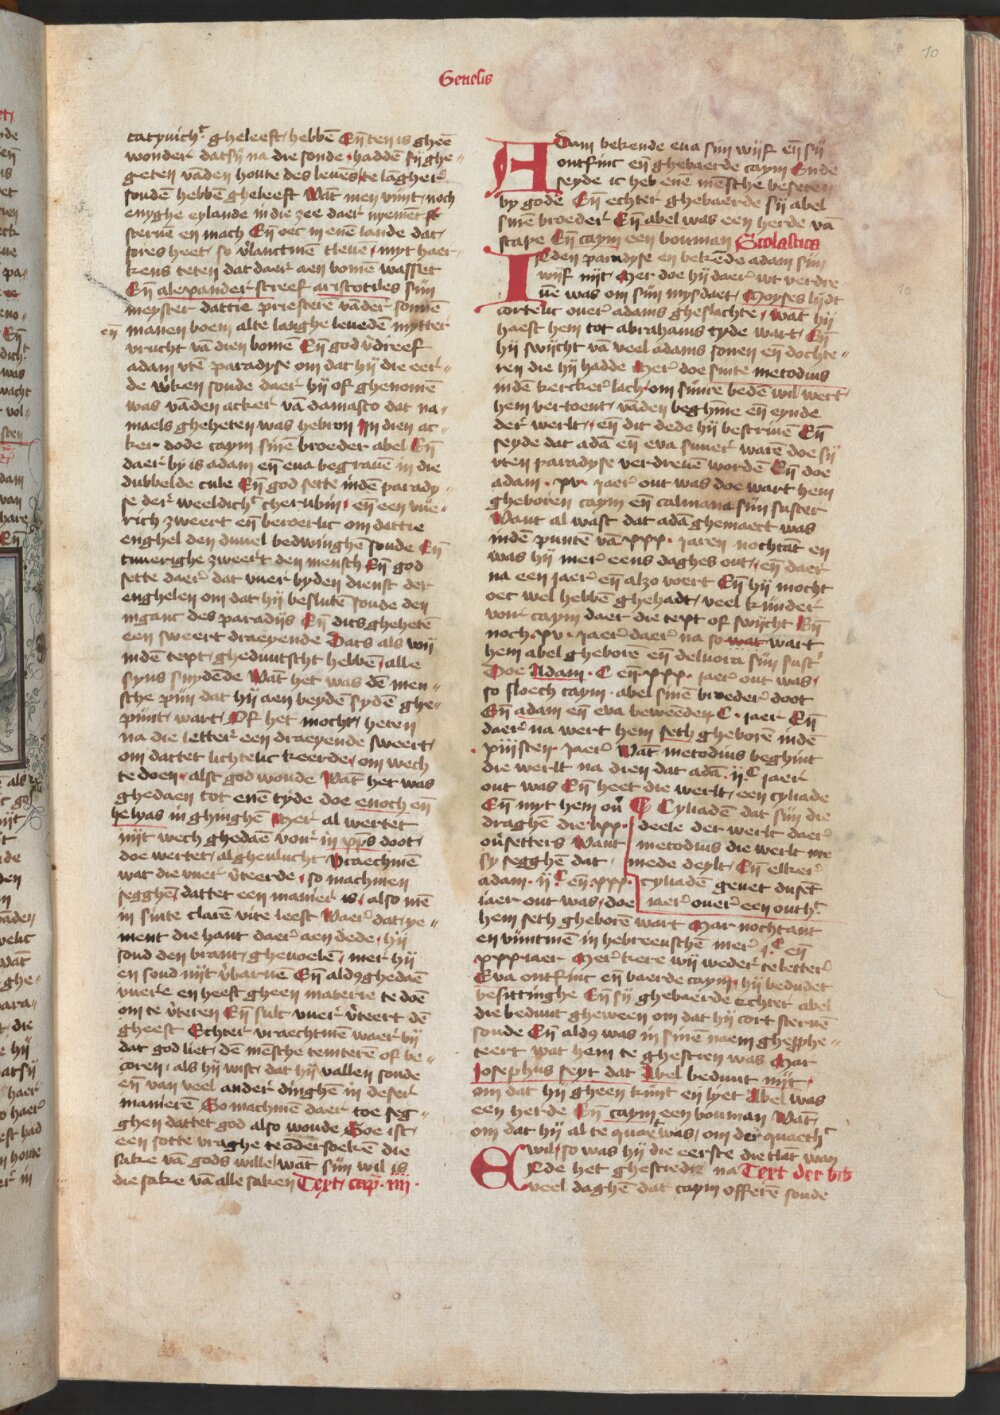 10
Genesis
gheleeft hebbē Eñ ten is gheē
wonder datsÿ na die sonde haddē sÿ ghe-
geten vādē houte des levēs te lāgher
soudē hebbē gheleeft Wāt men vint noch
enyghe eylande in die zee daer nyemēt
stervē en mach Eñ oec in enē lande dat
sores heet so
kens teten dat daer aen bomē wasset
Eñ alexander streef aristotiles sÿn
meyster dattie priestere vāder sonnē
eñ manen boem alte langhe levedē mytter
vrucht vā dien bomē Eñ god v̄dreef
adam vtē paradyse om dat hÿ die eer-
de sonde daer hÿ of ghenomē
was vādē acker vā damasco dat na-
maels gheheten was hebron In dien ac-
ker dode caym sinē broeder abel Eñ
daer by is adam eñ eva begravē in die
dubbelde cule Eñ god sette indē parady-
se der weeldich cherubin eñ een vue-
rich zweert eñ beroerlic om dattie
enghel den duvel bedwinghē soude Eñ
tvuerighe zweert den mensch Eñ god
sette daer dat vuer byden dienst der
enghelen om dat hÿ beslutē soude den
inganc des paradijs Eñ dits ghehetē
een sweert draeyende Dats als wÿ
indē text gheduutscht hebbē alle
syns snydēde Wāt het was dē men-
sche pijn dat hÿ aen beydē sydē ghe-
pijnt wart Of het mocht heten
na die letter een draeyende sweert
om dattet lichtelic keerde om wech
te doen alst god woude Wāt het was
ghedaen tot enē tyde doe enoch eñ
helyas in ghinghē Mer al wertet
nijt wech ghedaē voir in doot
doe wertet al ghevlucht Vraechmē
wat die vuer v̄teerde so machmen
segghē dattet een manier is also mē
in sinte clarē vite leest Waer dat ye-
ment die hant daer aen dede hÿ
soud den brant ghevoelē mer hÿ
en soud nijt v̄barnē Eñ aldꝰ ghedaē
vuere en heeft gheen materie te doē
om te v̄teren Eñ sult vuer v̄teert dē
gheest Echter vraechtmē waer bÿ
dat god liet dē mēsche temteren of be-
coren als hÿ wist dat hÿ vallen soude
eñ van veel ander dinghē in deser
manierē So machmē daer toe seg-
ghen dattet god also woude Soe ist
een sotte vraghe te ōdersoekē die
sake vā gods wille wāt sÿn wil is
die sake vā alle saken Text cap. iiij.
Adam bekende eva sijn wijf eñ sÿ
ontfinc eñ ghebaerde caym Ende
seyde ic heb enē mēsche beseten
by gode Eñ echter ghebaerde sÿ abel
sinē broeder Eñ abel was een herde vā
scape Eñ caym een bouman Scolastica
In den paradyse en bekēde adam sÿn
wijf nijt Mer doe hÿ daer wt verdre-
vē was om sÿn mysdaet Moyses lijdt
cortelic over adams gheslachte wāt hÿ
haest hem tot abrahams tyde wart Eñ
hÿ swijcht vā veel adams sonen eñ dochte-
ren die hÿ hadde Mer doe sinte metodius
indē kerker lach om sinre bedē wil wert
hem vertoent vāden beghine eñ eynde
der werlt eñ dit dede hÿ bescrivē Eñ
seyde dat adā eñ eva suver warē doe sÿ
vten paradyse verdrevē wordē Eñ doe
adam .xv. jaer out was doe wart hem
gheboren caym eñ calmana sÿn suster
Want al wast dat adā ghemaect was
indē puntē vā .xxx. jaren nochtāt en
was hÿ mer eens daghes out eñ daer
na een jaer eñ alzo voert Eñ hÿ mocht
oec wel hebbē ghehadt veel kinder
voir caym daer die text of swijcht Eñ
noch .xv. jaer daer na so wart
hem abel gheborē eñ delvora sÿn sust
Doe Adam .C. eñ .xxx. jaer out was
so sloech caym abel sinē broeder doot
Eñ adam eñ eva beweēden C. jaer Eñ
daer na wert hem seth gheborē indē
jaer Wāt metodius beghint
die werlt na dien dat adā .ij.C jaer
out was Eñ heet die werlt een cyliade
Eñ myt hem ou̅ Cyliadē dat sijn die
draghē die lxx. deele der werlt daer
ou̅setters Want metodius die werlt me
sy segghē dat mede deylt Eñ elker
adam .ij.C eñ .xxx. cyliadē gevet dusēt
jaer out was doe jaer over een outh
hem seth gheborē wart Mar nochtant
en vintmē in hebreeuschē mer .j.C eñ
.xxx jaer Mer kere wÿ weder te letter
Eva ontfinc eñ baerde caym hÿ bedudet
besittinghe Eñ sÿ ghebaerde echter abel
die beduut gheween om dat hÿ cort stervē
soude Eñ aldꝰ was in sinē naem gheprophe-
teert wat hem te ghescien was Mar
Josephus seyt dat Abel beduut nijt
om dat hÿ gheen kijnt en liet Abel was
een herde Eñ caym een bouman Wāt
om dat hÿ al te quaet was om der quaeth
wil so was hÿ die eerste die tlāt wan
Ende het ghesciedē na Text der bib
veel daghē dat caym offerē soude